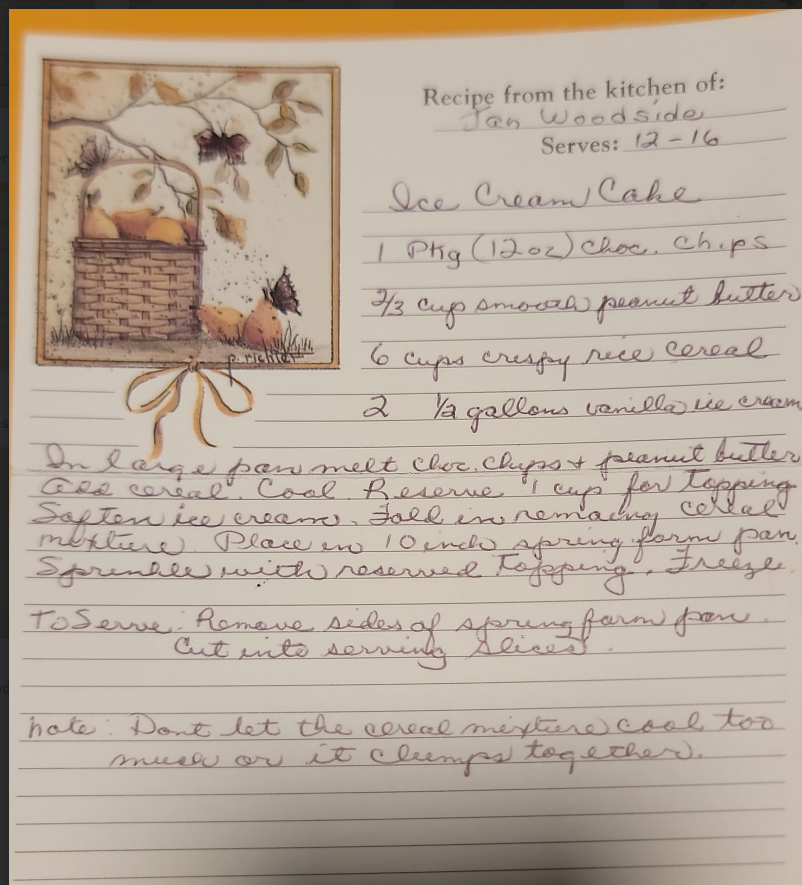 Recipe from the kitchen of:
Jan Woodside
Serves: 12-16
Ice Cream Cake
1 Pkg (12oz) choc. chips
2/3 cup smooth peanut butter
6 cups crispy rice cereal
2 1/2 gallons vanilla ice cream
p. richter
In large pan melt choc. chips + peanut butter
add cereal. Cool. Reserve 1 cup for Topping
Soften ice cream. Fold in remaing cereal
mixture. Place in 10 inch spring form pan.
Sprinkle with reserved Topping. Freeze.
To Serve: Remove sides of spring form pan.
Cut into serving slices.
note: Dont let the cereal mixture cool too
much or it clumps together.